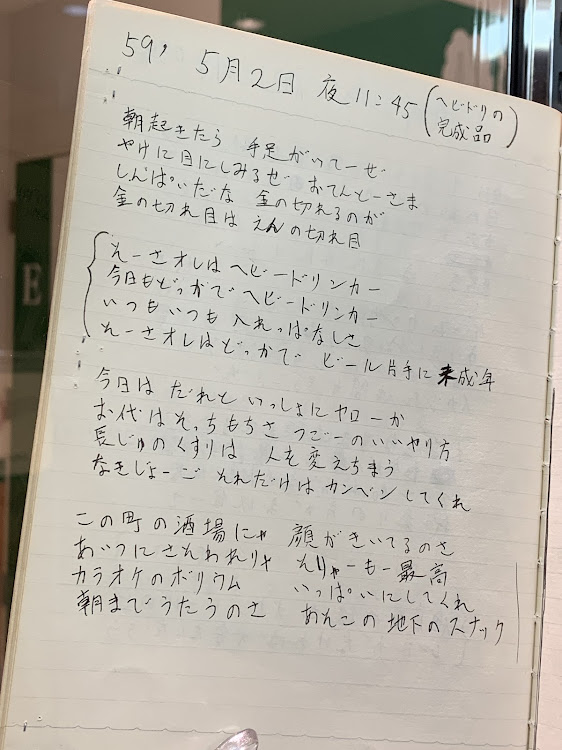 59' 5月2日 夜11:45 (ヘビードリの完成品)
朝起きたら 手足がいてーぜ
やけに目にしみるぜ おてんとーさま
しんぱいだな 金の切れるのが
金の切れ目は えんの切れ目
そーさオレはヘビードリンカー
今日もどっかでヘビードリンカー
いつもいつも 入れっぱなしさ
そーさオレはどっかで ビール片手に 未成年
今日は だれと いっしょにヤローか
お代はそっちもちさ つごーのいいやり方
長じゅのくすりは 人を変えちまう
なきじょーご それだけは カンベンしてくれ
この町の酒場にゃ 顔がきいてるのさ
あいつにさそわれリャ そりゃーもー最高
カラオケのボリウム いっぱいにしてくれ
朝までうたうのさ あそこの地下のスナック
E